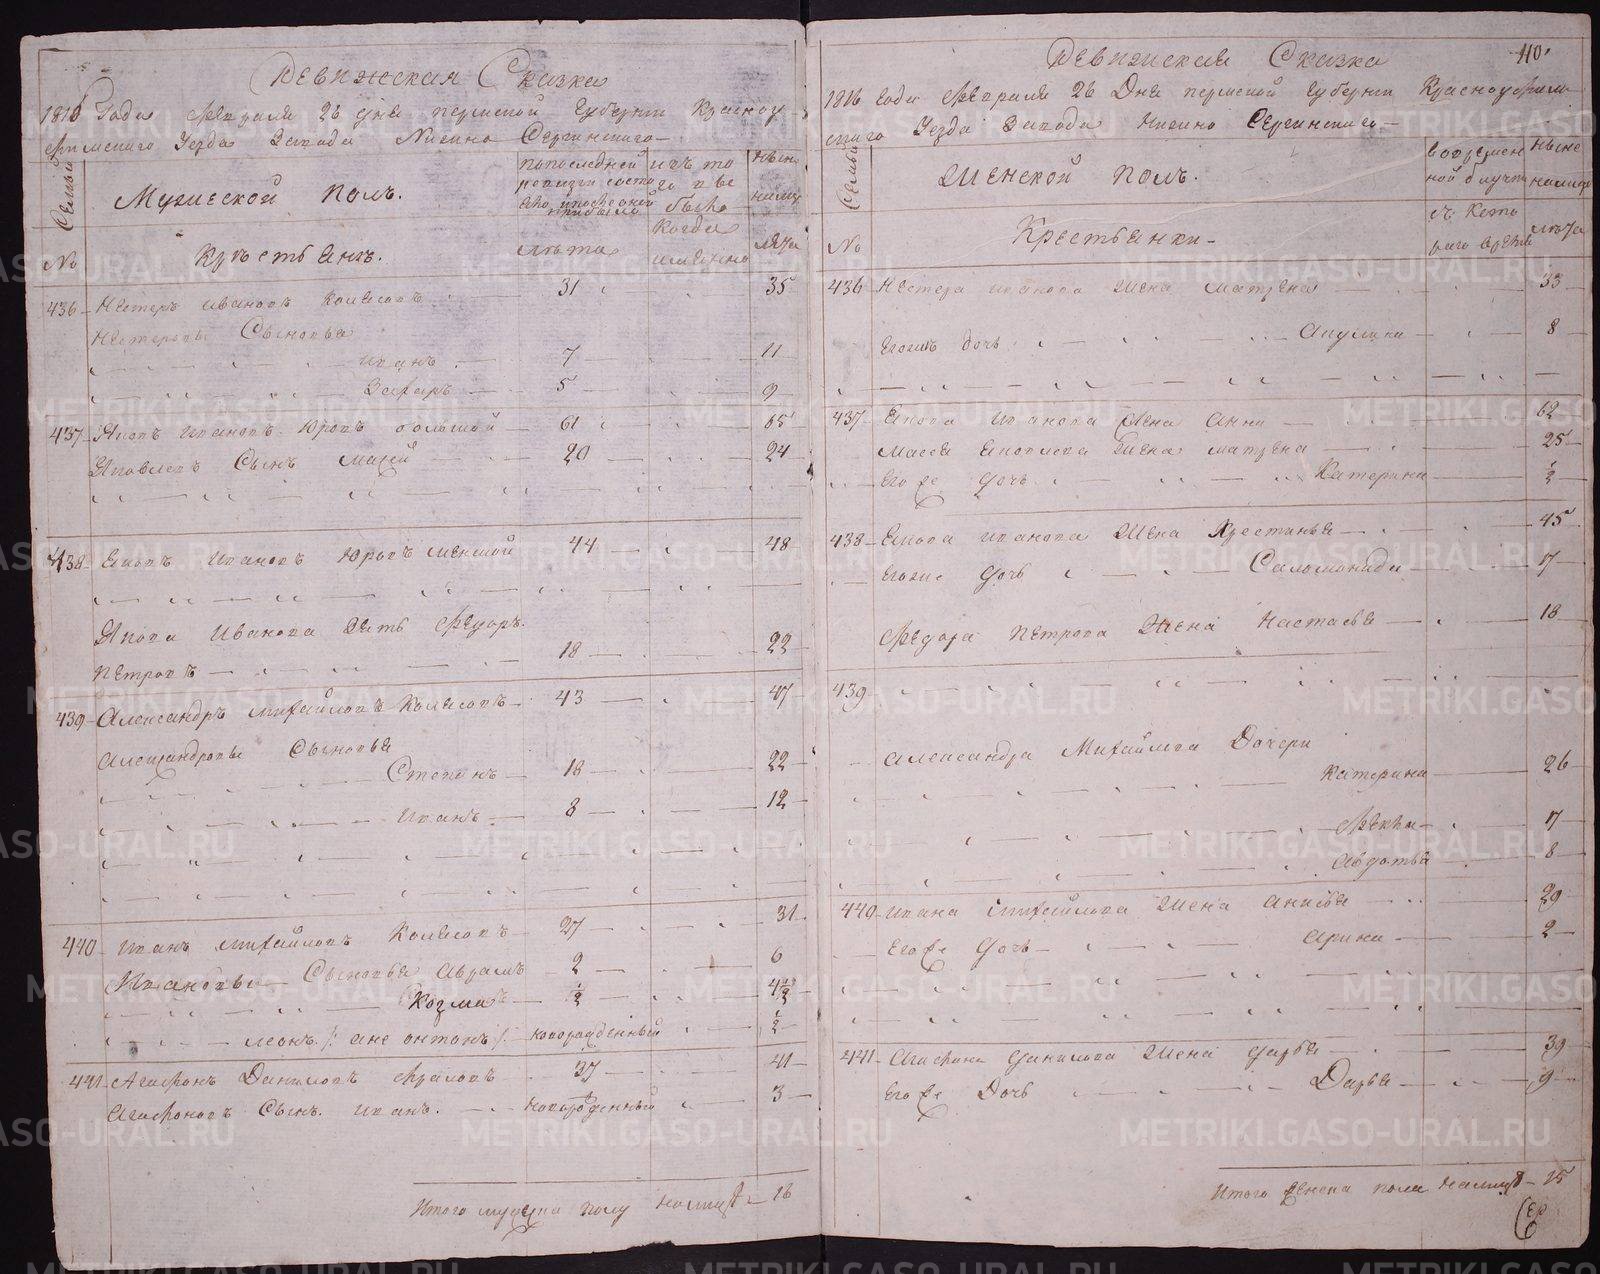 Ревижская Сказка
1816 Года Февраля 26 дня пермской Губернии Красноу
фимскаго Уезда Завода Нижно Сергинскаго
Семьи
Мужеской полъ.
по последней ревизии состояло и после оной прибыло
изъ то го п ве было
ныне на лицо
№
Крестьянъ.
лета
Когда имянно
лета
436 Нестеръ Ивановъ Колясовъ 31 35
Нестеровы Сыновья
Иванъ 7 11
Захаръ 5 9
437 Яковъ Ивановъ Юровъ большой 61 65
Яковлевъ Сынъ Масей 20 24
438 Яковъ Ивановъ Юровъ меншой 44 48
Якова Иванова Зять Федоръ
Петровъ 18 22
439 Александръ Михайловъ Колясовъ 43 47
Александровы Сыновья
Степанъ 18 22
Иванъ 8 12
440 Иванъ Михайловъ Колясовъ 27 31
Ивановы Сыновья Аврамъ 2 6
Козма ½ 4½
леонъ /: ане онтонъ :/ новорожденный ½
441 Агафонъ Даниловъ Фраловъ 37 41
Агафоновъ Сынъ Иванъ. новорожденный 3
Итого мужеска полу налицо 16
110
Ревижская Сказка
1816 Года Февраля 26 Дня пермской Губернии Красноуфим
скаго Уезда Завода Нижно Сергинскаго
Семьи
Женской полъ.
во временной отлучке
ныне налицо
№
Крестьянки
съ Кото раго время
лета
436 Нестера Иванова Жена Матрена 33
Егожъ дочь Акулина 8
437 Якова Иванова Жена Анна 62
Масея Яковлева Жена матрена 25
Его же дочь Катерина ½
438 Якова Иванова Жена Крестинья 45
Егоже Дочь Саломонида 17
Федора Петрова Жена Настасья 18
439
Александра Михайлова Дочери
Катерина 26
Фекла 17
Авдотья 8
440 Ивана Михайлова Жена Анисья 29
Его же Дочь Арина 2
441 Агафона Данилова Жена Дарья 39
Его же Дочь Дарья 9
Итого женска пола налицо 15
METRIKI.GASO-URAL.RU